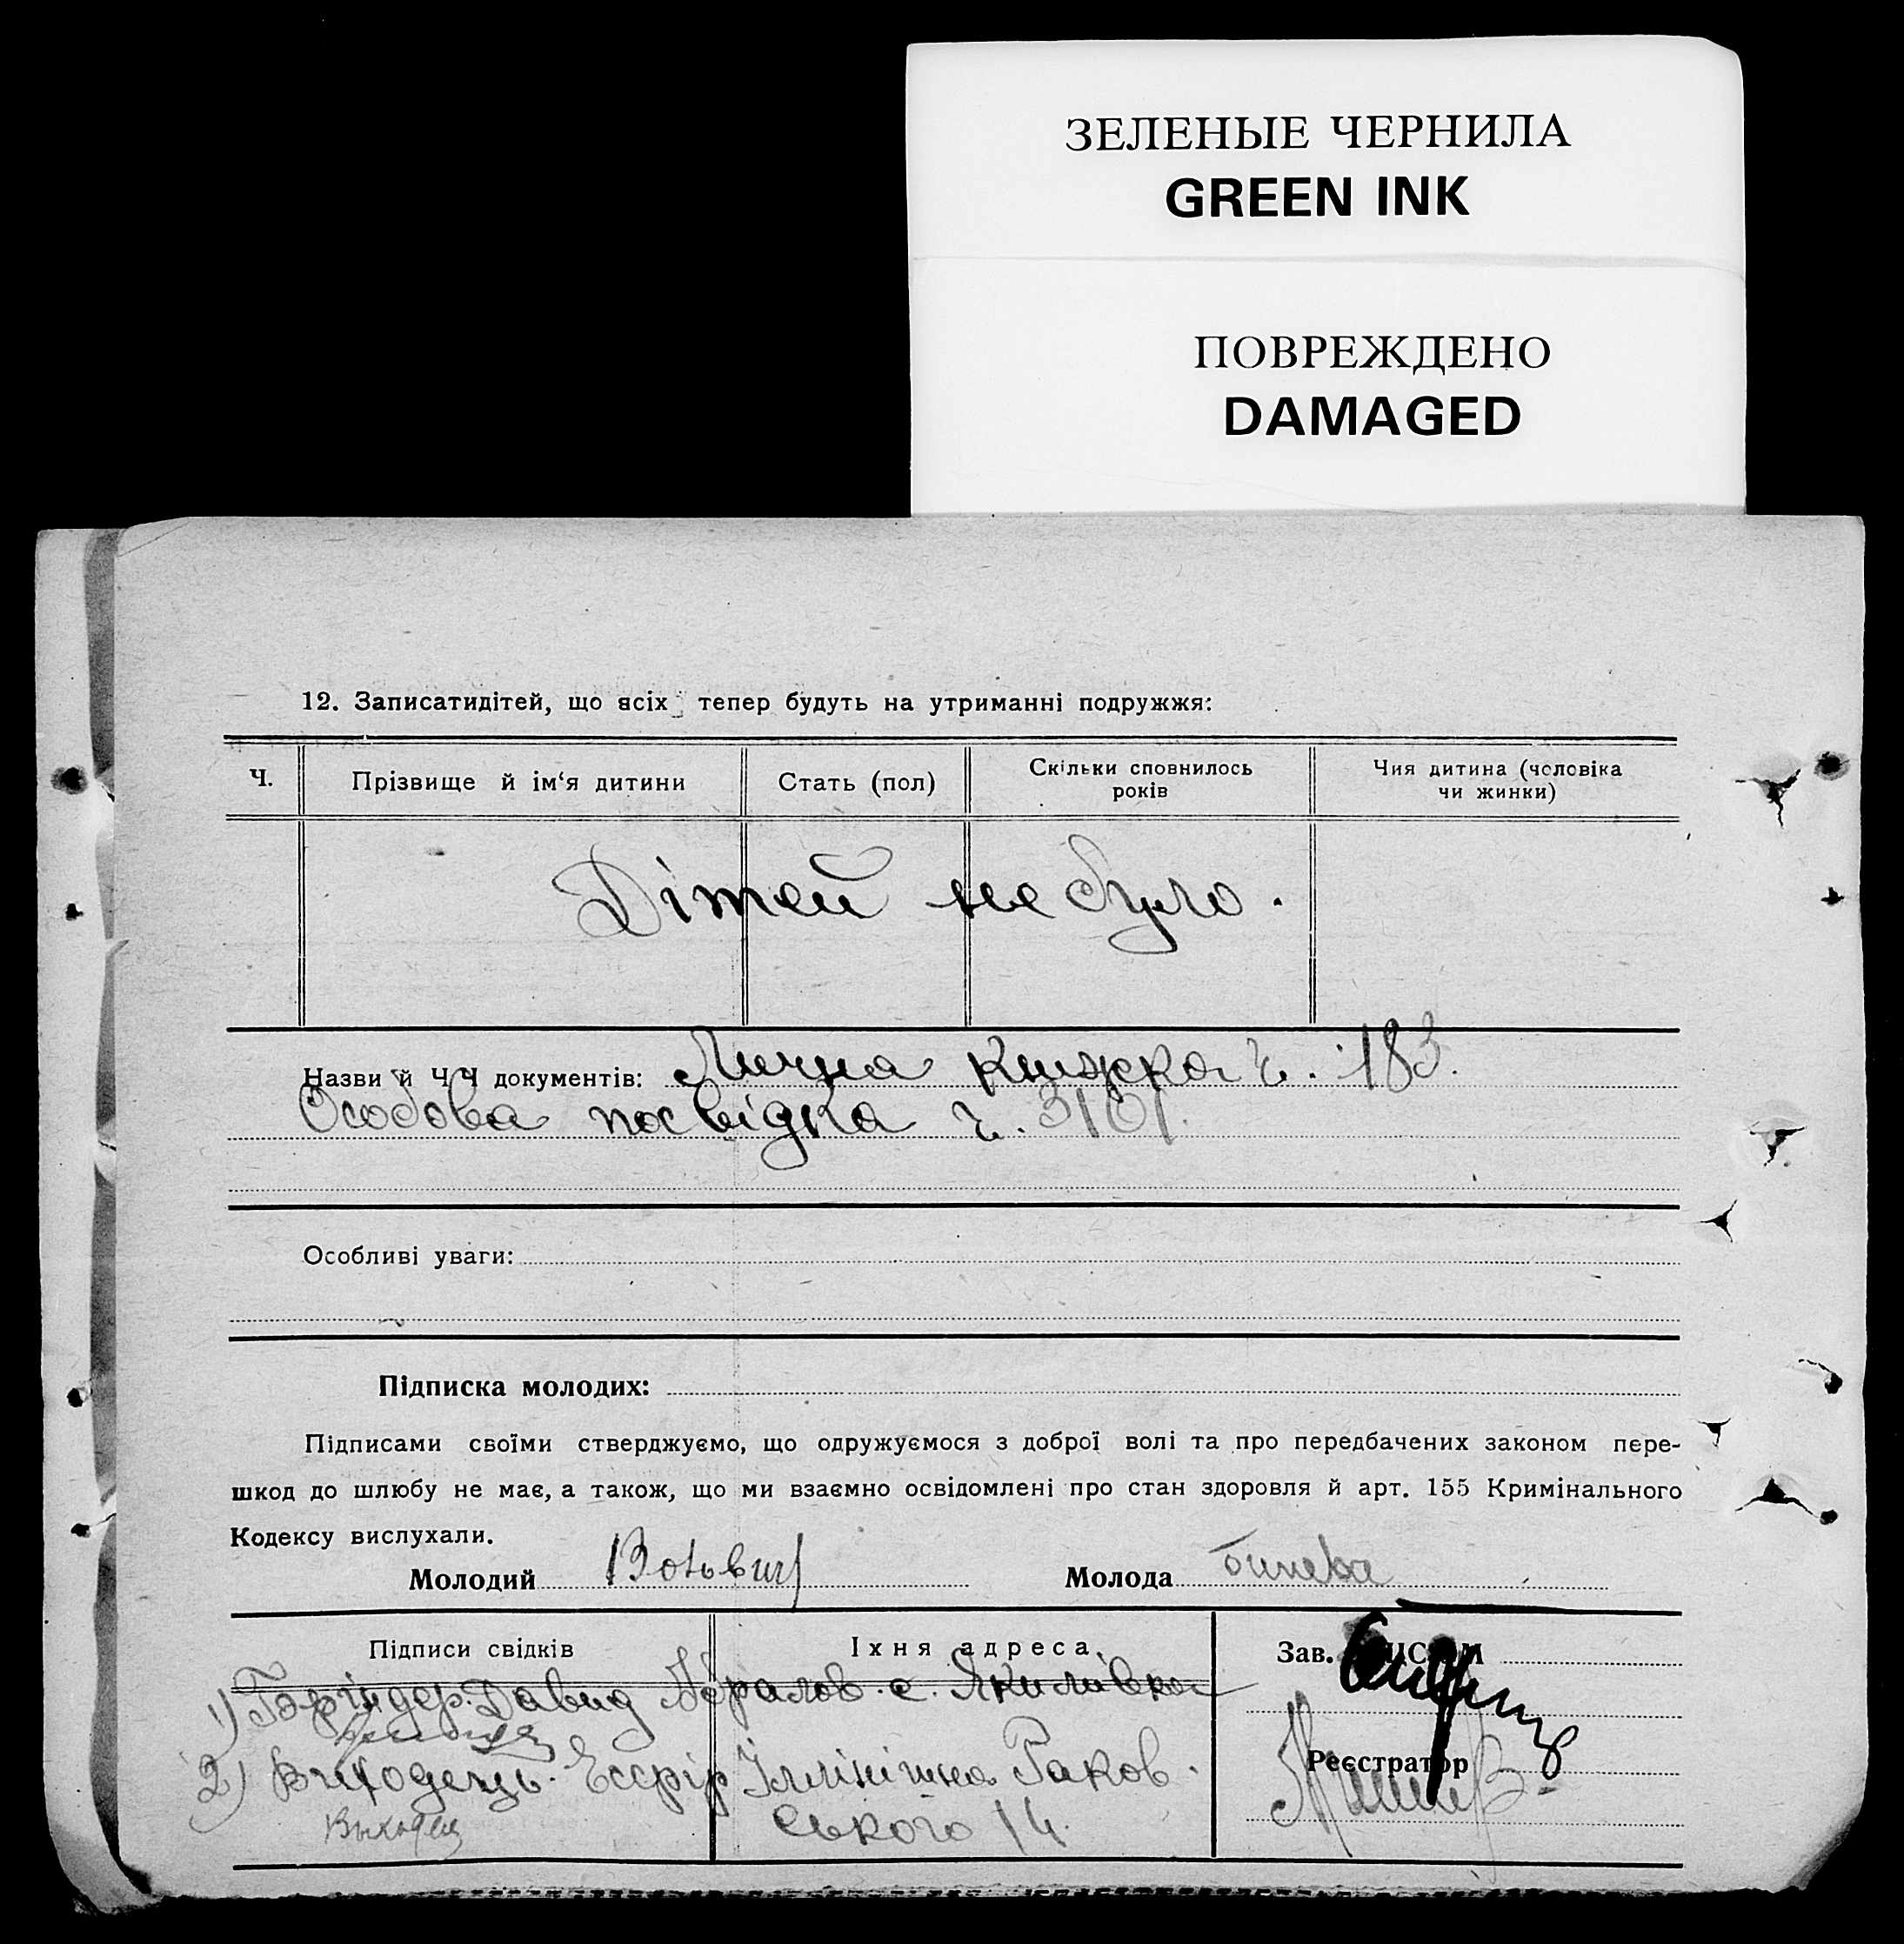 ЗЕЛЕНЫЕ ЧЕРНИЛА
GREEN INK
ПОВРЕЖДЕНО
DAMAGED
12. Записатидітей, що всіх тепер будуть на утриманні подружжя:
Ч. Прізвище й ім‘я дитини Стать (пол) Скільки сповнилось років Чия дитина (чоловіка чи жинки)
Дітей не було.
Назви й Ч Ч документів: Лична книжка ч. 183.
Особова посвідка ч. 3101.
Особливі уваги:
Підписка молодих:
Підписами своїми стверджуємо, що одружуємося з доброї волі та про передбачених законом пере-
шкод до шлюбу не має, а також, що ми взаємно освідомлені про стан здоровля й арт. 155 Кримінального
Кодексу вислухали.
Молодий Молода
Підписи свідків Їхня адреса Зав.
1) Давид с. Якимівка
2) Виходець Раков
ського 14.
Реєстратор